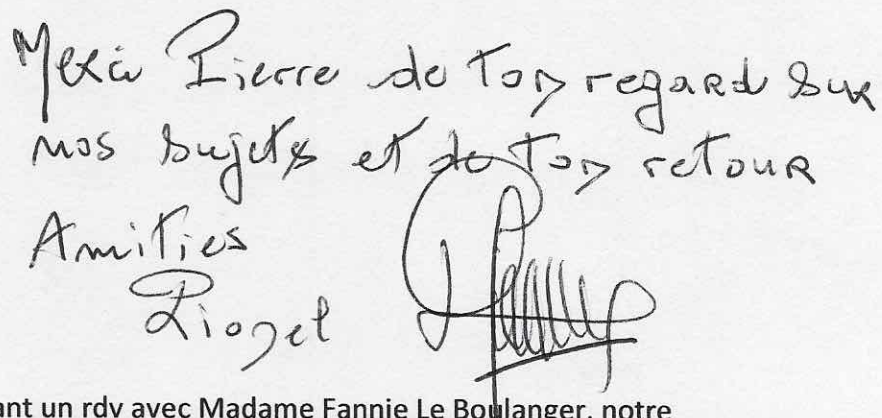 Merci Pierre de ton regard sur
nos sujets et de ton retour
Amitiés
Lionel
ant un rdv avec Madame Fannie Le Boulanger, notre